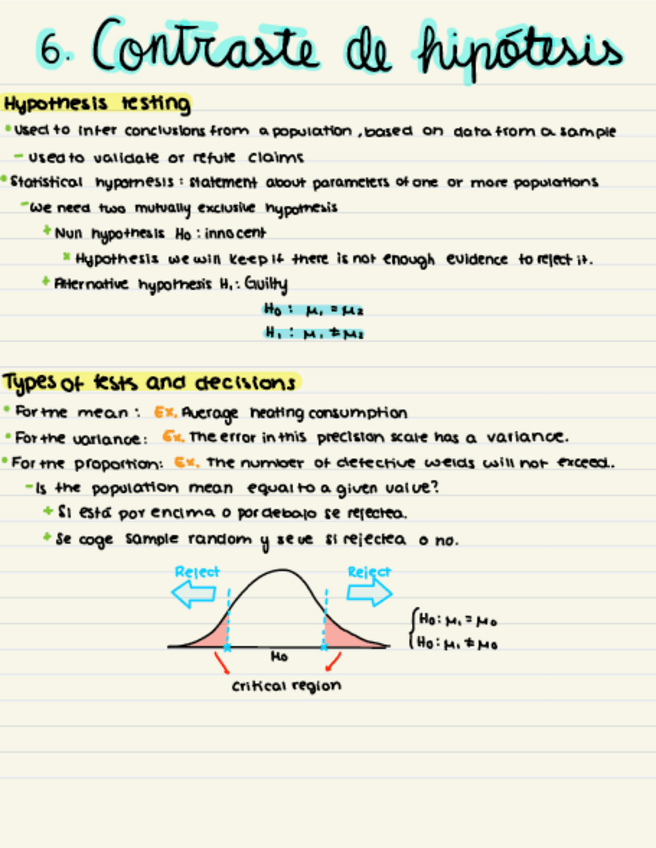 6. Contraste de hipótesis
Hypothesis testing
• Used to infer conclusions from a population, based on data from a sample
- used to validate or refute claims
• Statistical hypothesis: statement about parameters of one or more populations
- We need two mutually exclusive hypothesis
+ Null hypothesis H₀: innocent
* Hypothesis we will keep if there is not enough evidence to reject it.
+ Alternative hypothesis H₁: Guilty
H₀: μ₁ = μ₂
H₁: μ₁ ≠ μ₂
Types of tests and decisions
• For the mean: Ex. Average heating consumption
• For the variance: Ex. The error in this precision scale has a variance.
• For the proportion: Ex. The number of defective welds will not exceed..
- Is the population mean equal to a given value?
+ Si está por encima o por debajo se rejectea.
+ Se coge sample random y se ve si rejectea o no.
Reject Reject
H₀: μ₁ = μ₀
H₀: μ₁ ≠ μ₀
μ₀
Critical region